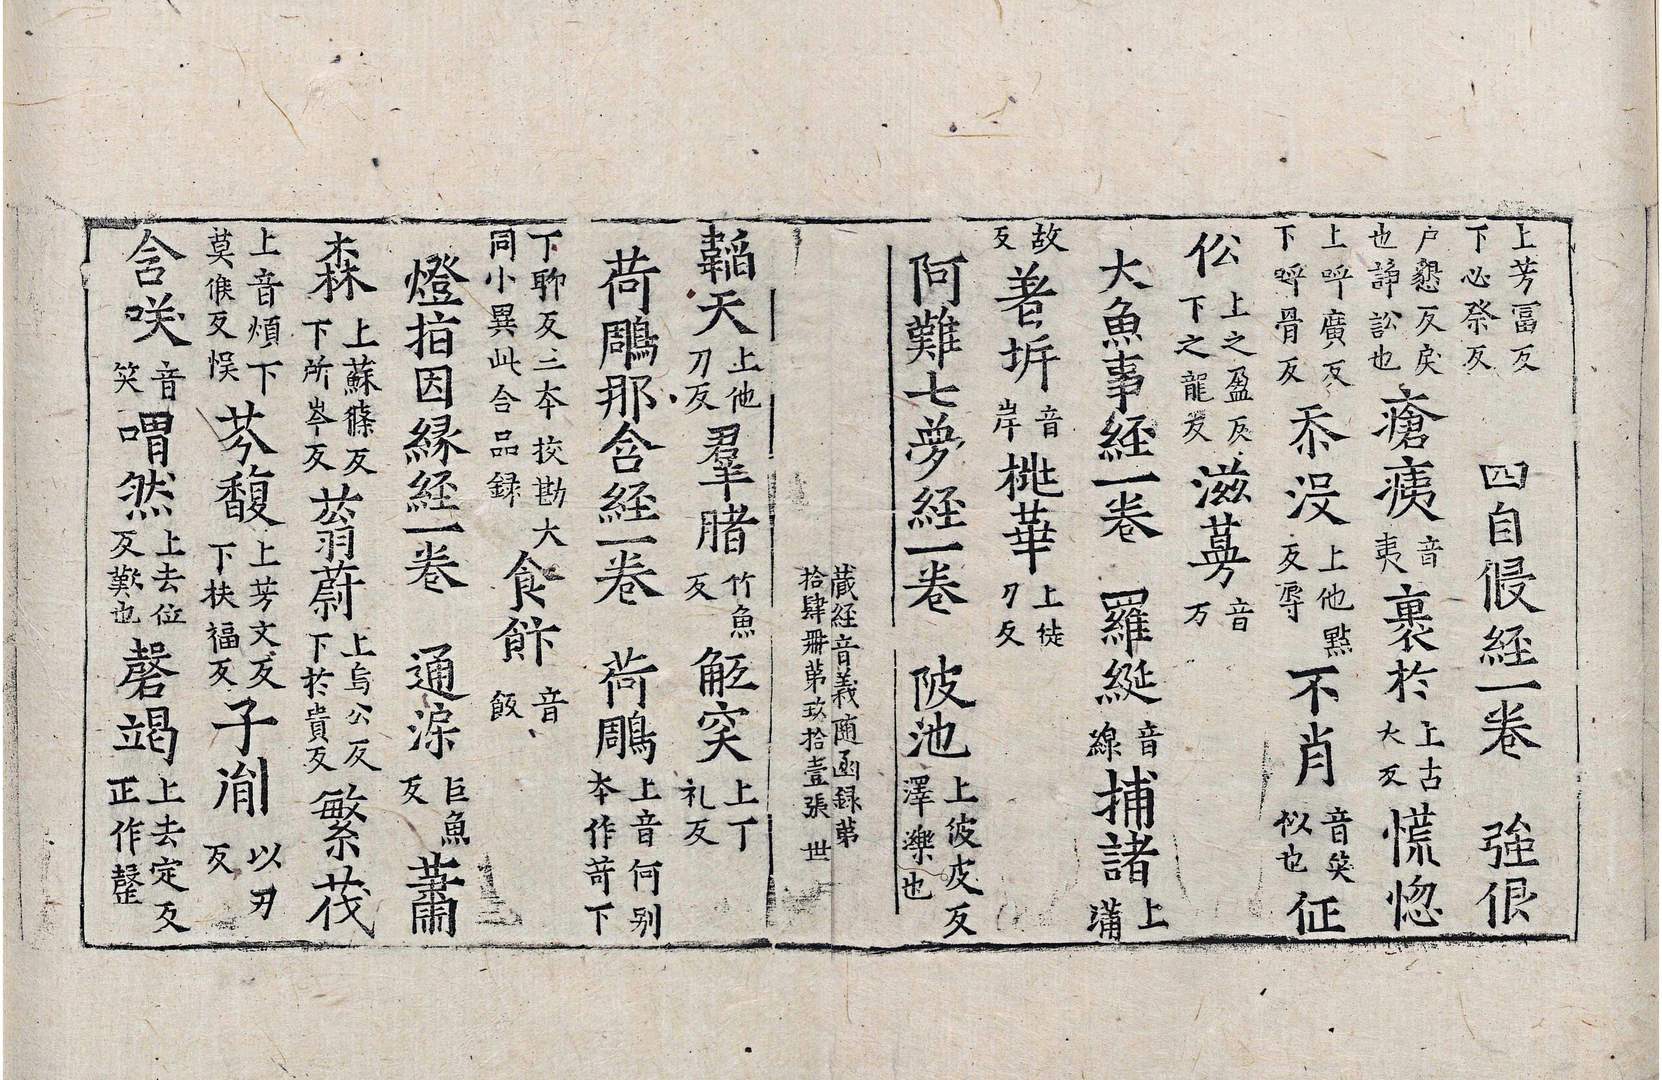 四自侵經一卷　強佷
上芳冨反下必祭反户懇反戾也諍訟也瘡痍音夷裹於上古大反慌惚
上呼廣反下呼骨反忝没上他點反辱不肖音笑似也怔
伀上之盈反下之龍反滋蔓音万
大魚事經一卷　羅綖音線捕諸上蒲
故反著坼音岸桃華上徒刀反
阿難七夢經一卷　陂池上彼皮反澤濼也
藏經音義随函録苐拾肆冊苐玖拾壹張　世
韜天上他刀反羣賭竹魚反觝突上丁礼反
荷鵰那含經一卷　荷鵰上音何别夲作苛下
下聊反三夲挍勘大同小異此合品録食飰音飯
燈指因縁經一卷　通㴱巨魚反蕭
森上蘇條反下所岑反蓊蔚上烏公反下於貴反繁茂
上音煩下莫候反悮芬馥上芳文反下扶福反子胤以刃反
含咲音笑喟然上去位反歎也磬竭上去定反正作罄